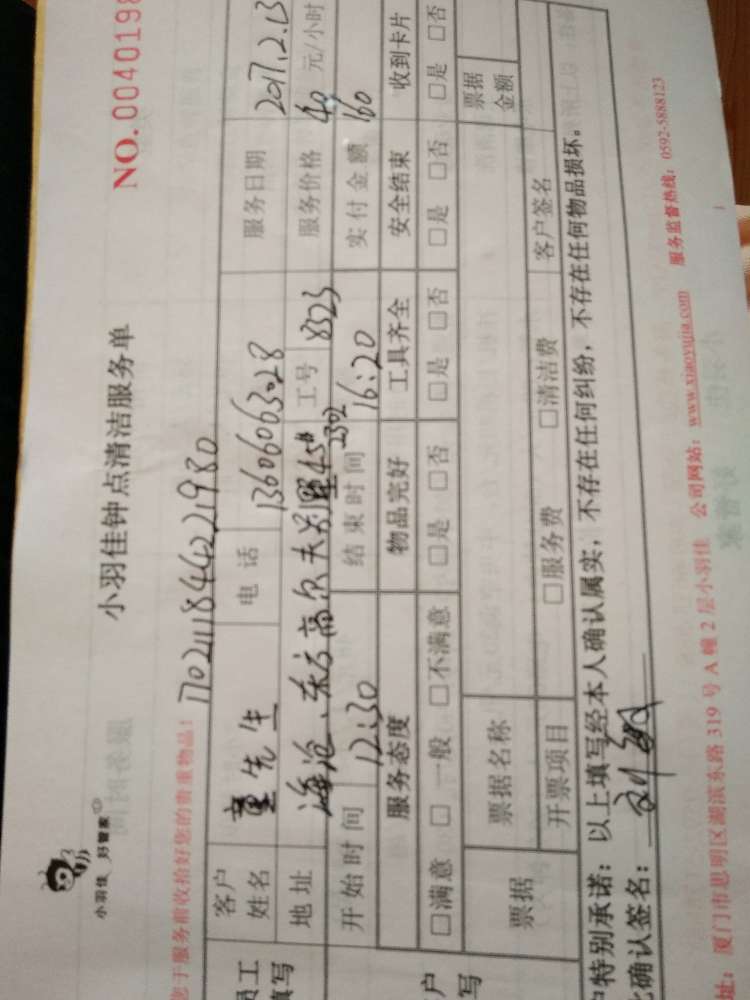 小羽佳 好管家
小羽佳钟点清洁服务单
NO.0040198
您于服务前收拾好您的贵重物品!
17021118444221980
员工
填写
客户
姓名
童先生
电 话
13606063028
服务日期
2017.2.13
地 址
海沧、东方高尔夫别墅45#
2302
工号
8323
服务价格
40 元/小时
开始时间
12:30
结束时间
16:20
实付金额
160
服务态度
物品完好
工具齐全
安全结束
收到卡片
□满意 □一般 □不满意
□是 □否
□是 □否
□是 □否
□是 □否
票据
票据名称
票据
金额
开票项目
□服务费
□清洁费
客户签名
特别承诺:以上填写经本人确认属实,不存在任何纠纷,不存在任何物品损坏。
确认签名:
址:厦门市思明区湖滨东路 319 号 A 幢 2 层小羽佳 公司网站:www.xiaoyujia.com 服务监督热线:0592-5888123